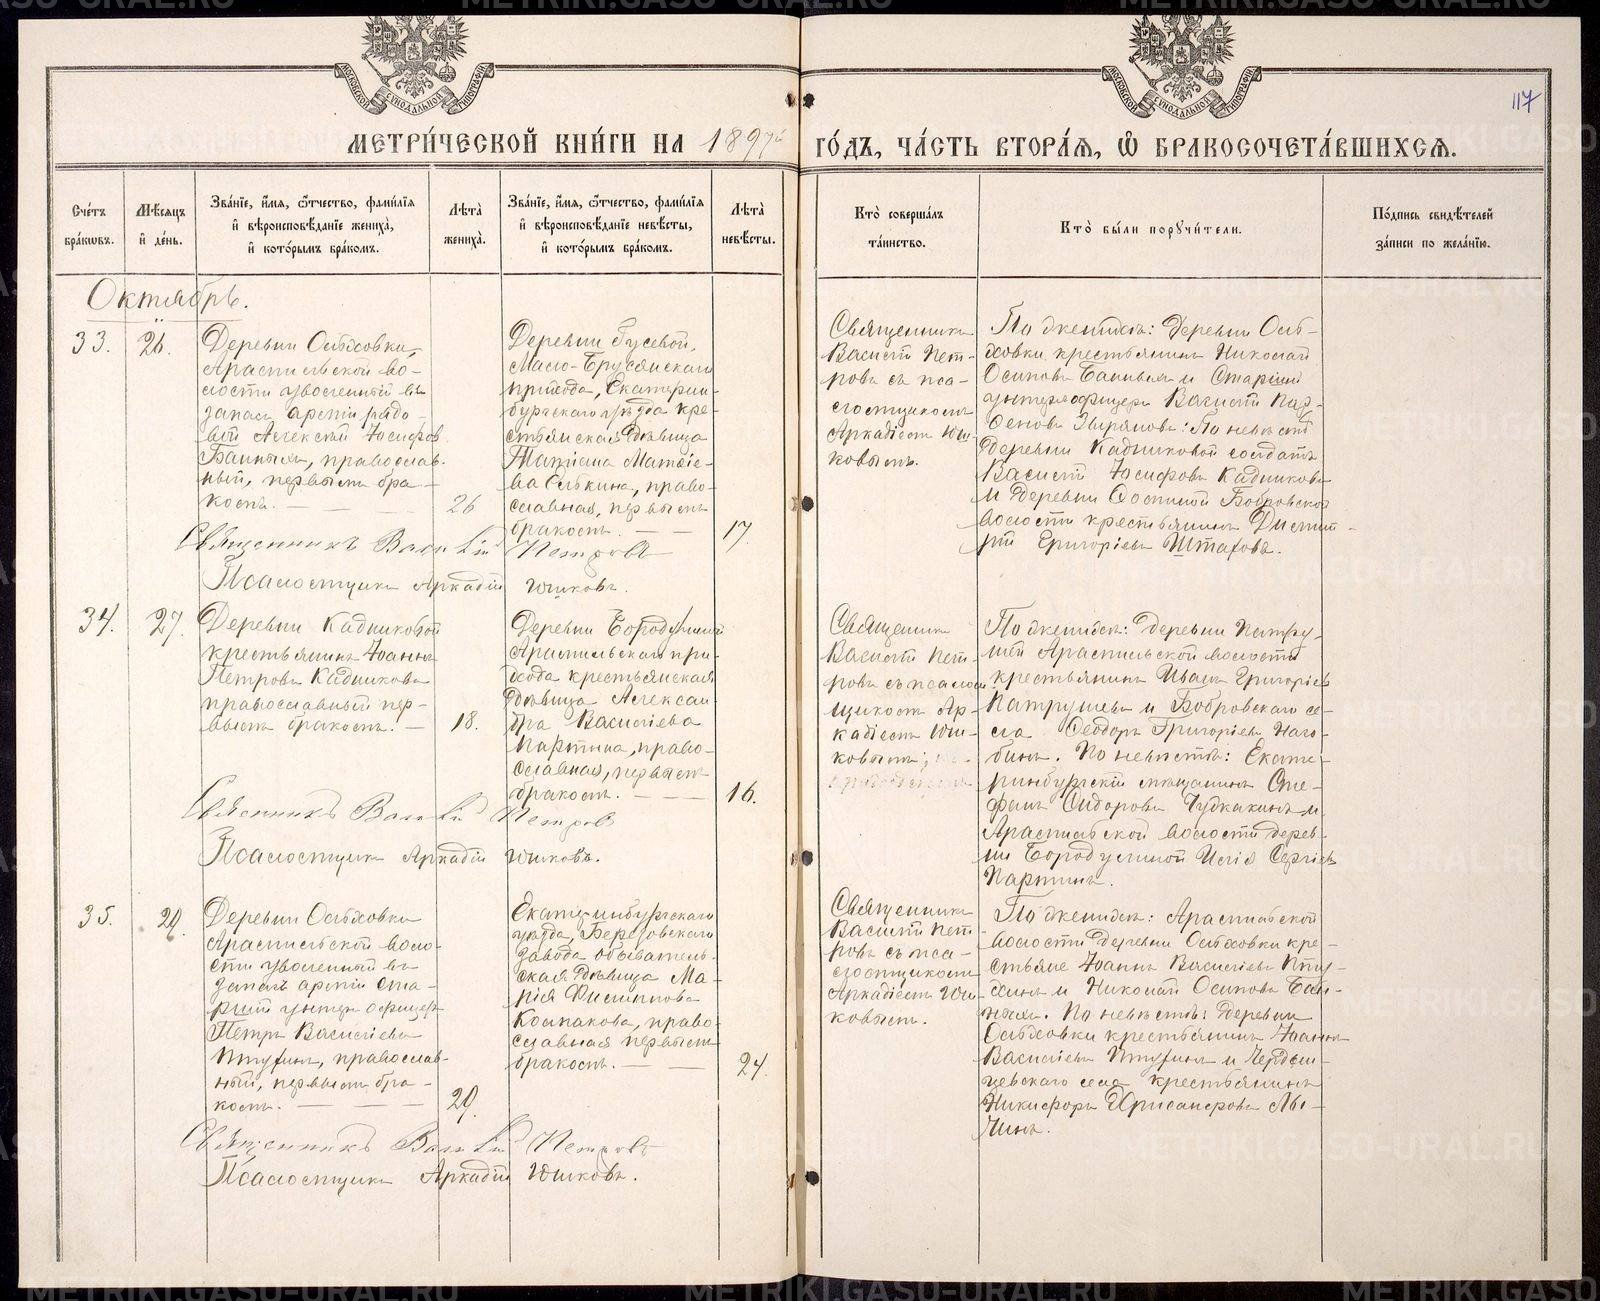 117
МЕТРИ́ЧЕСКОЙ КНИ́ГИ НА 1897й ГО́ДЪ, ЧА́СТЬ ВТОРА́Я, Ѡ БРАКОСОЧЕТА́ВШИХСЯ.
Сче́тъ бра́кωвъ.
Мѣ́сяцъ и де́нь.
Зва́нїе, и́мя, ѻ́тчество, фами́лїя
и вѣроисповѣ́данїе жениха̀,
и кото́рымъ бра́комъ.
Лѣта̀ жениха̀.
Зва́нїе, и́мя, ѻ́тчество, фами́лїя
и вѣроисповѣ́данїе невѣ́сты,
и кото́рымъ бра́комъ.
Лѣта̀ невѣ́сты.
Кто̀ соверша́лъ
та́инство.
Кто̀ бы́ли порꙋчи́тели.
По́дпись свидѣ́телей
за́писи по жела́нїю.
Октябрь.
33.
26.
Деревни Ольховки,
Арамильской во-
лости уволенный въ
запасъ армiи рядо-
вой Алексiй Iосифовъ
Банныхъ, православ-
ный, первымъ бра-
комъ.
26
Деревни Гусевой,
Мало-Брусянскаго
прихода, Екатерин-
бургскаго уѣзда кре-
стьянская дѣвица
Татiана Матѳiе-
ва Бабкина, право-
славная, первымъ
бракомъ.
17.
Священникъ
Василiй Пет-
ровъ съ пса-
ломщикомъ
Аркадiемъ Юш-
ковымъ.
По женихѣ: деревни Оль-
ховки крестьянинъ Николай
Осиповъ Банныхъ и Старшiй
унтеръ офицеръ Василiй Пар-
ѳеновъ Зыряновъ: По невѣстѣ
деревни Кадниковой солдатъ
Василiй Iосифовъ Кадниковъ
и деревни Бобровской
волости крестьянинъ Димит-
рiй Григорiевъ
Священникъ Василiй Петровъ
Псаломщикъ Аркадiй Юшковъ.
34.
27.
Деревни Кадниковой
крестьянинъ Iоаннъ
Петровъ Кадниковъ
православный пер-
вымъ бракомъ.
18.
Деревни Бородулиной
Арамильскаго при-
хода крестьянская
дѣвица Алексан-
дра Василiева
Партина, право-
славная, первымъ
бракомъ.
16.
Священникъ
Василiй Пет-
ровъ съ псалом-
щикомъ Ар-
кадiемъ Юш-
ковымъ;
По женихѣ: деревни Патру-
шей Арамильской волости
крестьянинъ Иванъ Григорiевъ
Патрушевъ и Бобровскаго се-
ла Ѳеодоръ Григорiевъ Наго-
бинъ. По невѣстѣ: Екате-
ринбургскiй мѣщанинъ Сте-
фанъ Сидоровъ и
Арамильской волости дерев-
ни Бородулиной Илiя Сергiевъ
Партинъ.
Священникъ Василiй Петровъ
Псаломщикъ Аркадiй Юшковъ.
35.
29.
Деревни Ольховки
Арамильской воло-
сти уволенный въ
запасъ армiи ста-
ршiй унтеръ офицеръ
Петръ Василiевъ
Птухинъ, православ-
ный, первымъ бра-
комъ.
29.
Екатеринбургскаго
уѣзда, Березовскаго
завода обыватель-
ская дѣвица Ма-
рiя Филиппова
Колпакова, право-
славная первымъ
бракомъ.
24.
Священникъ
Василiй Пет-
ровъ съ пса-
ломщикомъ
Аркадiемъ Юш-
ковымъ.
По женихѣ: Арамильской
волости деревни Ольховки кре-
стьяне Iоаннъ Василiевъ Пту-
хинъ и Николай Осиповъ Бан-
ныхъ. По невѣстѣ: деревни
Ольховки крестьянинъ Iоаннъ
Василiевъ Птухинъ и
села крестьянинъ
Никифоръ Хрисанфовъ Лы-
чинъ.
Священникъ Василiй Петровъ
Псаломщикъ Аркадiй Юшковъ.
METRIKI.GASO-URAL.RU